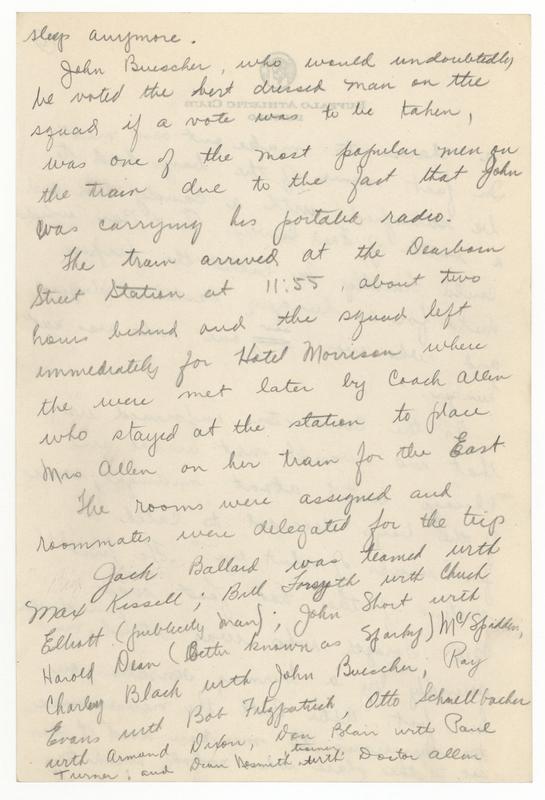 sleep anymore.
John Buescher, who would undoubtedly
be voted the best dressed man on the
squad if a vote was to be taken,
was one of the most popular men on
the train due to the fact that John
was carrying his portable radio.
The train arrived at the Dearborn
Street Station at 11:55, about two
hours behind and the squad left
immediately for Hotel Morrison where
the were met later by Coach Allen
who stayed at the station to place
Mrs Allen on her train for the East
The rooms were assigned and
roommates were delegated for the trip
Jack Ballard was teamed with
Max Kissell; Bill Forsyth with Chuck
Elliott (publicity man); John Short with
Harold Dean (Better known as Sparky) McSpadden,
Charley Black with John Buescher, Ray
Evans with Bob Fitzpatrick, Otto Schnellbacher
with Armand Dixon, Don Blair with Paul
Turner; and Dean Nesmith, trainer, with Doctor Allen